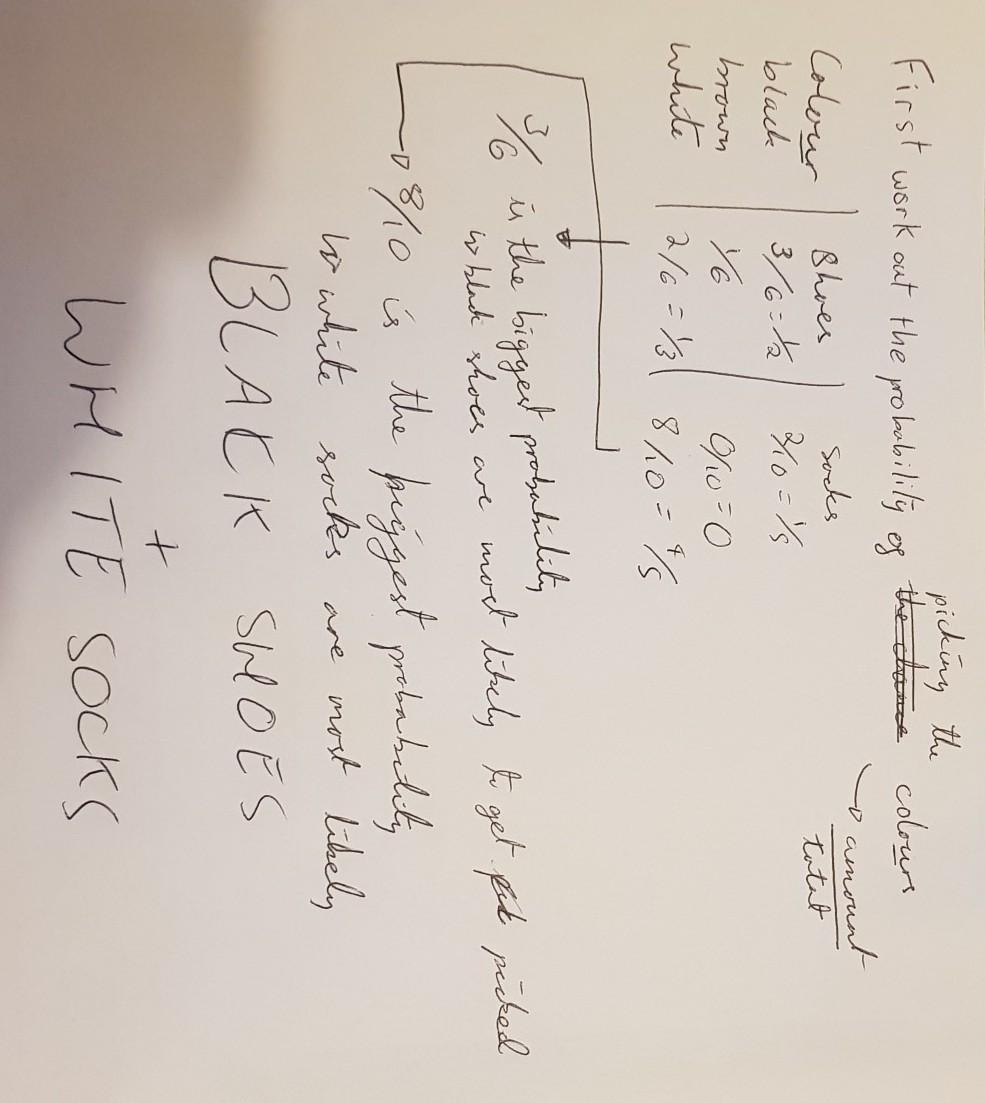 picking the
First work out the probability of the chance colours
amount
total
Colour Shoes Socks
black 3/6 = 1/2 2/10 = 1/5
brown 1/6 0/10 = 0
white 2/6 = 1/3 8/10 = 4/5
3/6 is the biggest probability
so black shoes are most likely to get picked
8/10 is the biggest probability
so white socks are most likely
BLACK SHOES
+
WHITE SOCKS